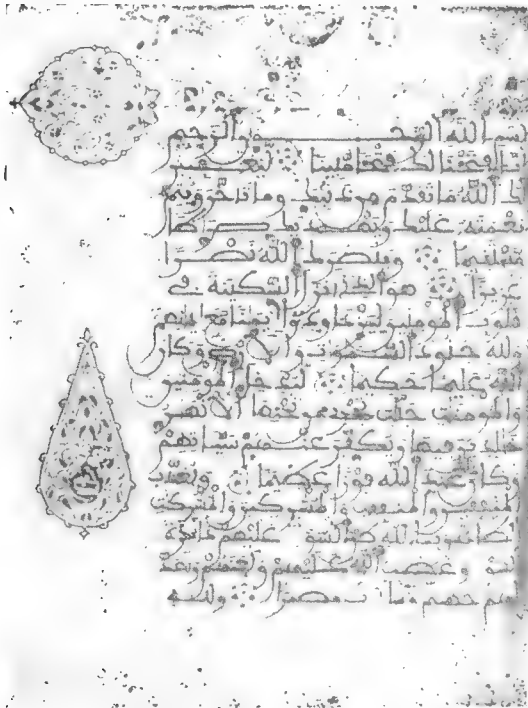 بسم الله الرحمن الرحيم
انا فتحنا لك فتحا مبينا ليغفر
لك الله ما تقدم من ذنبك وما تاخر ويتم
نعمته عليك ويهديك صرطا
مستقيما وينصرك الله نصرا
عزيزا هو الذي انزل السكينة في
قلوب المومنين ليزدادوا ايمنا مع ايمنهم
ولله جنود السموت والارض وكان
الله عليما حكيما ليدخل المومنين
والمومنت جنت تجري من تحتها الانهر
خلدين فيها ويكفر عنهم سياتهم
وكان ذلك عند الله فوزا عظيما ويعذب
المنفقين والمنفقت والمشركين والمشركت
الظانين بالله ظن السوء عليهم دائرة
السوء وغضب الله عليهم ولعنهم واعد
لهم جهنم وساءت مصيرا ولله